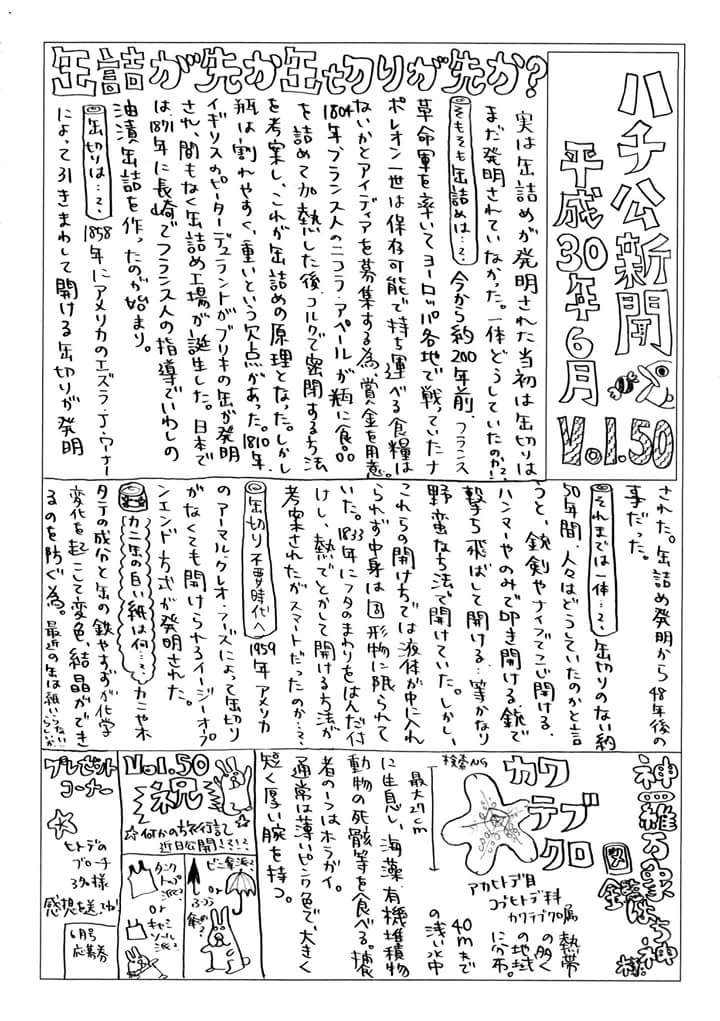 ハチ公新聞
平成30年6月
Vol.50
缶詰が先か缶切りが先か?
実は缶詰めが発明された当初は缶切りは
まだ発明されていなかった。一体どうしていたのか?
そもそも缶詰めは…? 今から約200年前、フランス
革命軍を率いてヨーロッパ各地で戦っていたナ
ポレオン一世は保存可能で持ち運べる食糧は
ないかとアイディアを募集する為賞金を用意。
1804年、フランス人のニコラ・アペールが瓶に食
を詰めて加熱した後、コルクで密閉する方法
を考案し、これが缶詰めの原理となった。しかし
瓶は割れやすく、重いという欠点があった。1810年、
イギリスのピーターデュラントがブリキの缶が発明
され、間もなく缶詰め工場が誕生した。日本で
は、1871年に長崎でフランス人の指導でいわしの
油漬缶詰を作ったのが始まり。
缶切りは…? 1858年にアメリカのエズラ・J・ワーナー
によって引きまわして開ける缶切りが発明
された。缶詰め発明から48年後の
事だった。
それまでは一体…? 缶切りのない約
50年間、人々はどうしていたのかと言
うと、銃剣やナイフでこじ開ける、
ハンマーやのみで叩き開ける、銃で
撃ち飛ばして開ける…等かなり
野蛮な方法で開けていた。しかし、
これらの開け方では液体が中に入れ
られず中身は固形物に限られて
いた。1833年にフタのまわりをはんだ付
けし、熱でとかして開ける方法が
考案されたがスマートだったのか…?
缶切り不要時代へ 1959年アメリカ
のアーマル・クレオ・フーズによって缶切り
がなくても開けられるイージーオープ
ンエンド方式が発明された。
カニ缶の白い紙は何…? カニや木
タテの成分と缶の鉄やすずが化学
変化を起こして変色、結晶ができ
るのを防ぐ為。最近の缶は紙いらないらしいが…
神羅万象図鑑
はち神様
カワテブクロ
検査NG
最大27cm
アカヒトデ目
コブヒトデ科
カワテブクロ属
熱帯
の多く
の地域
に分布。
40mまで
の浅い水中
に生息し、海藻、有機堆積物
動物の死骸等を食べる。捕食
者の一つはホラガイ。
通常は薄いピンク色で、大きく
短く厚い腕を持つ。
Vol.50
祝
☆何かの旅行記
近日公開!?!?
タンク
トップ
派?
or
キャミ
ソール
派?
ビニ傘派?
or
ふつう
傘派?
プレゼント
コーナー
ヒトデの
ブローチ
3名様
感想を送ってね
6月号
応募券